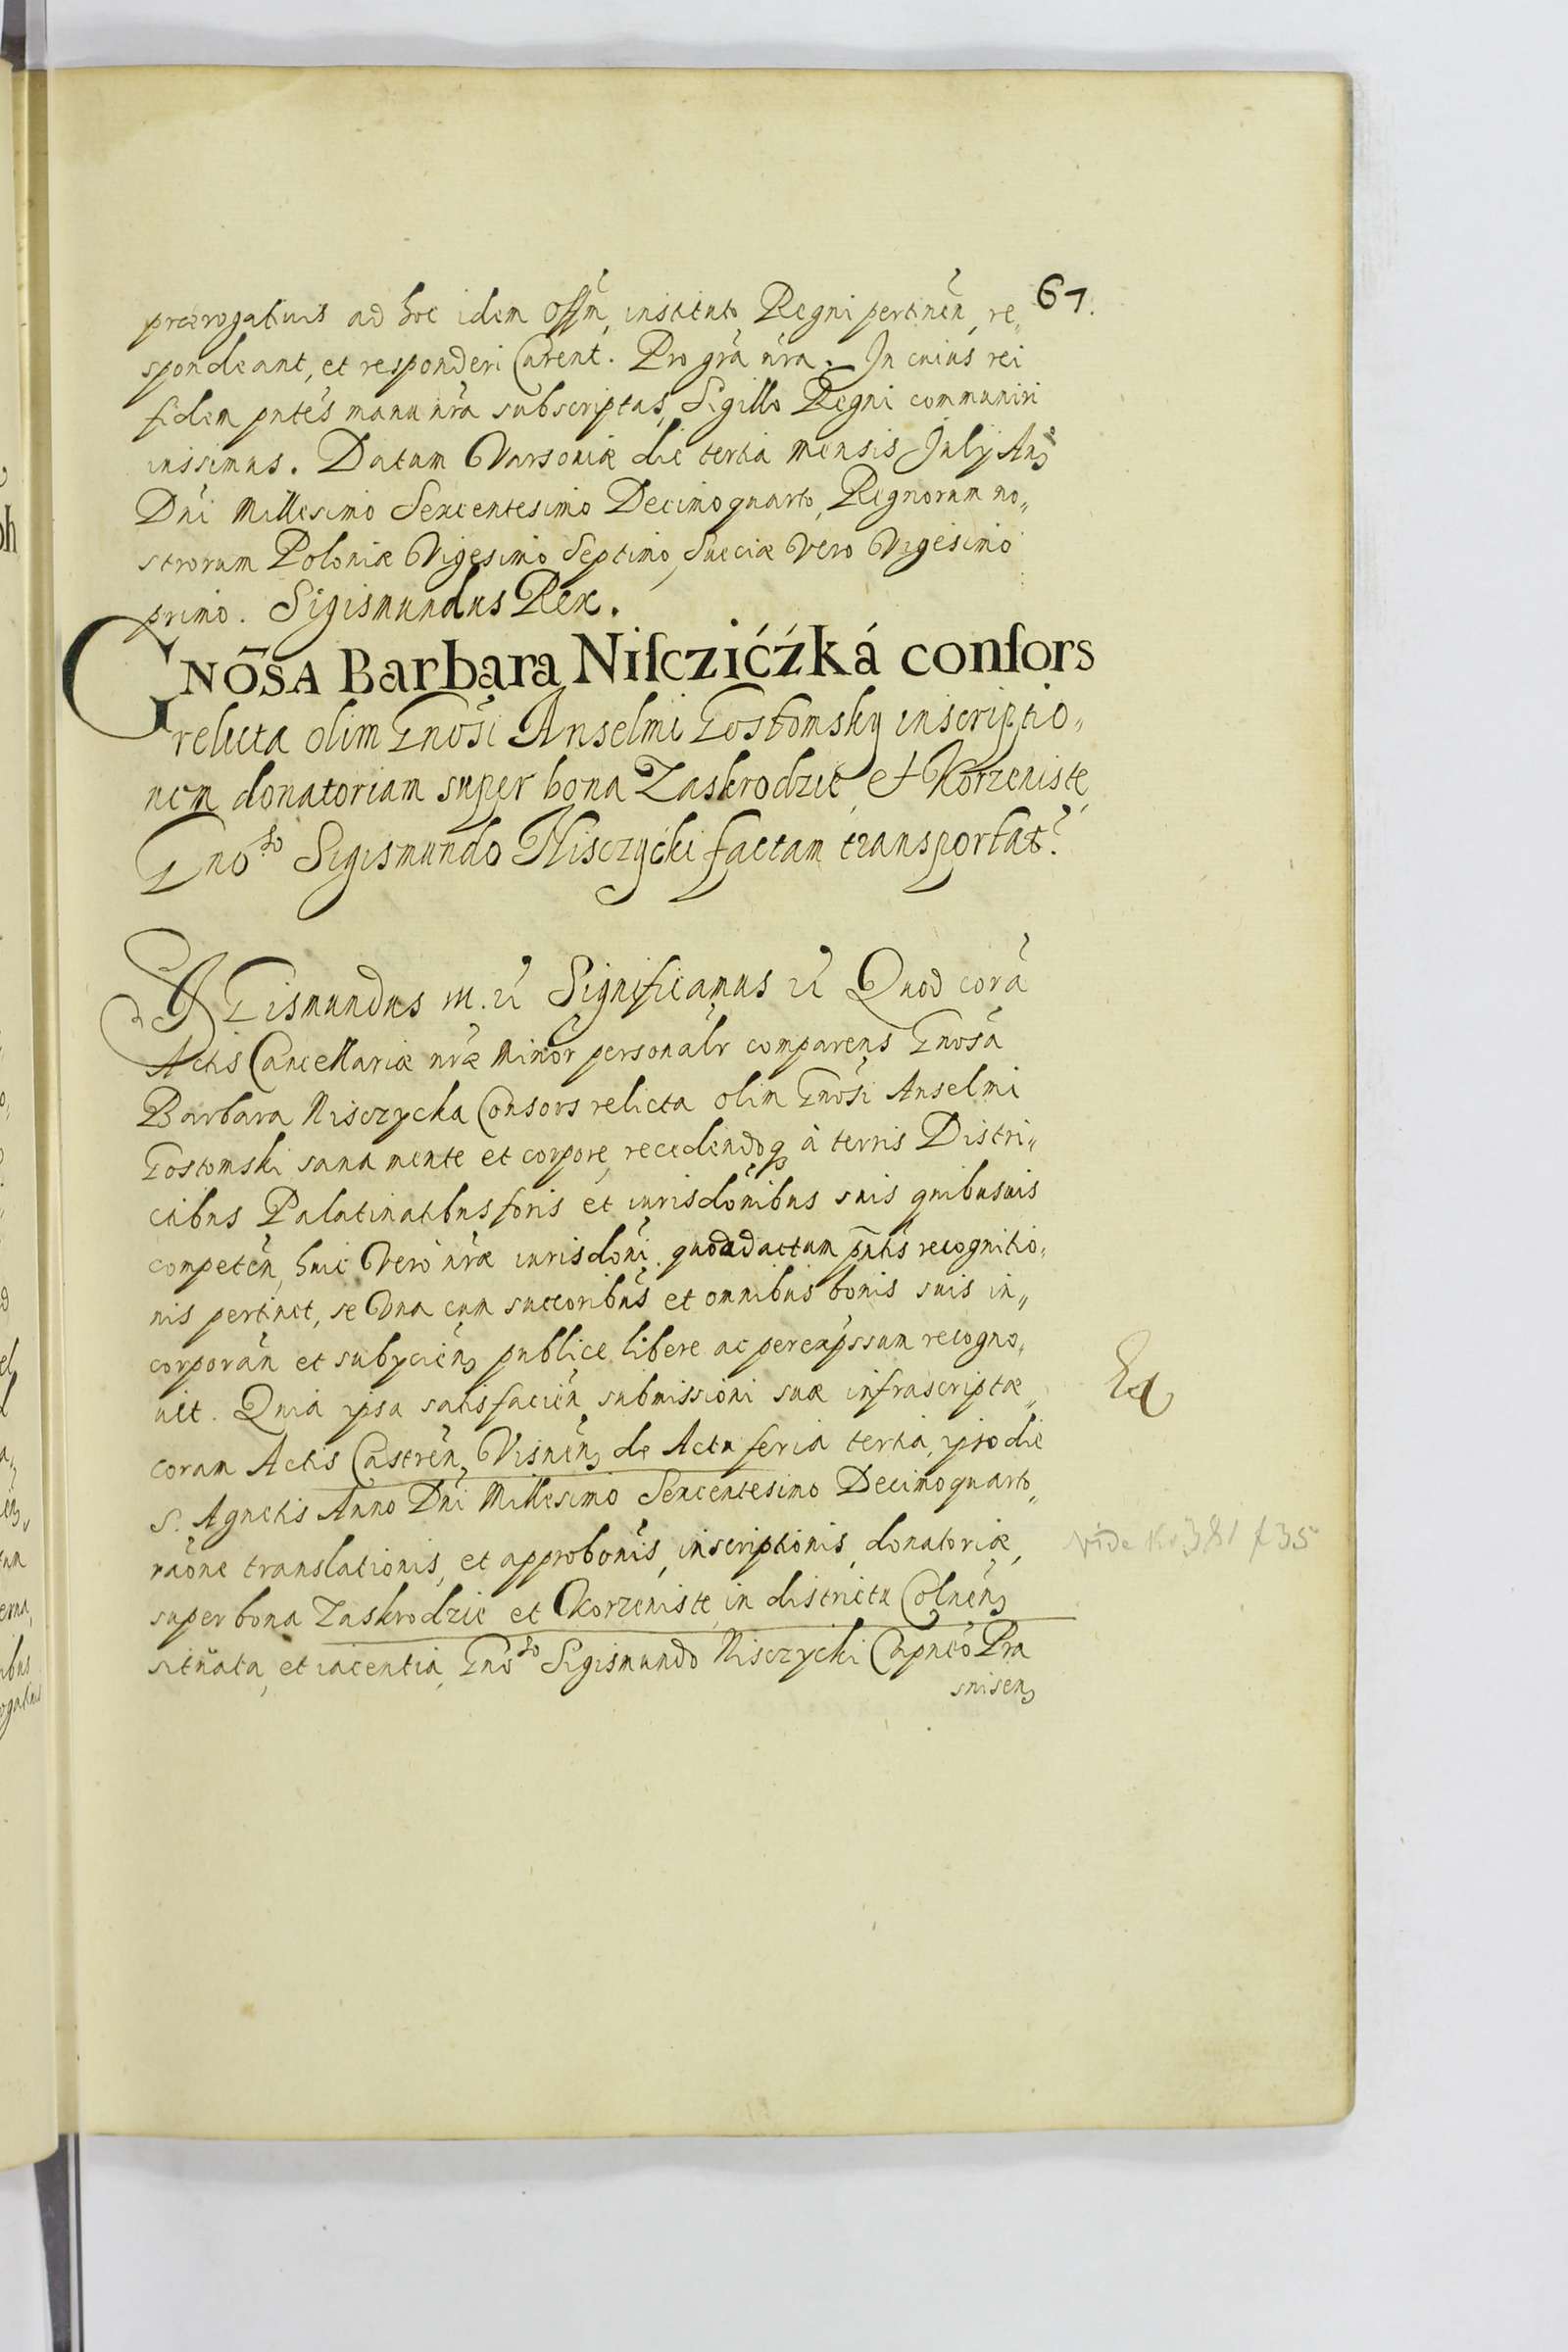 67.
prærogatiuis ad hoc idem Offm̃, instituto Regni pertineñ, re„
spondeant, et responderi Curent. Pro grã nr̃a. In cuius rei
fidem pñtes manu nr̃a subscriptas, Sigillo Regni communiri
iussimus. Datum Varsoviæ die tertia mensis July Anõ
Dñi Millesimo Sexcentesimo Decimoquarto, Regnorum no„
strorum Poloniæ Vigesimo Septimo, Sueciæ vero Vigesimo
primo. Sigismundus Rex.
GNÕSA Barbara Niſczićźká conſors
relicta olim Gnõsi Anselmi Gostomsky inscriptio„
nem donatoriam super bona Zaskrodzie, et Korzeniste,
Gnoso Sigismundo Nisczycki factam transportat.
SIGismundus III. etc̃ Significamus etc̃ Quod corã
Actis Cancellariæ nr̃æ Minor personalr̃ comparens Gnõsa
Barbara Nisczycka Consors relicta olim Gnõsi Anselmi
Gostomski sana mente et corpore, recedendoq à terris Distri„
ctibus Palatinatibus foris et iurisdõnibus suis quibusuis
competeñ, huic Vero nr̃æ iurisdõni quo ad actum p̃ntis recognitio„
nis pertinet, se Vna cum succoribus̃ et omnibus bonis suis in„
corporañ et subycieñ, publice libere ac per expssum recogno„
uit. Quia ipsa satisfacieñ, submissioni suæ infrascriptæ„
coram Actis Castreñ, Visneñ, de Actu feria tertia, ipso die
S. Agnetis Anno Dñi Millesimo Sexcentesimo Decimoquarto„
raõne translationis, et approbõnis, inscriptionis, donatoriæ,
super bona Zaskrodzie et Korzeniste, in districtu Colneñ,
situata, et iacentia, Gnoso Sigismundo Nisczycki Capneõ Pra
snisen,
vide Ks 381 f 35